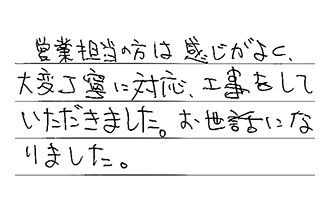 営業担当の方は感じがよく、
大変丁寧に対応、工事をして
いただきました。お世話にな
りました。